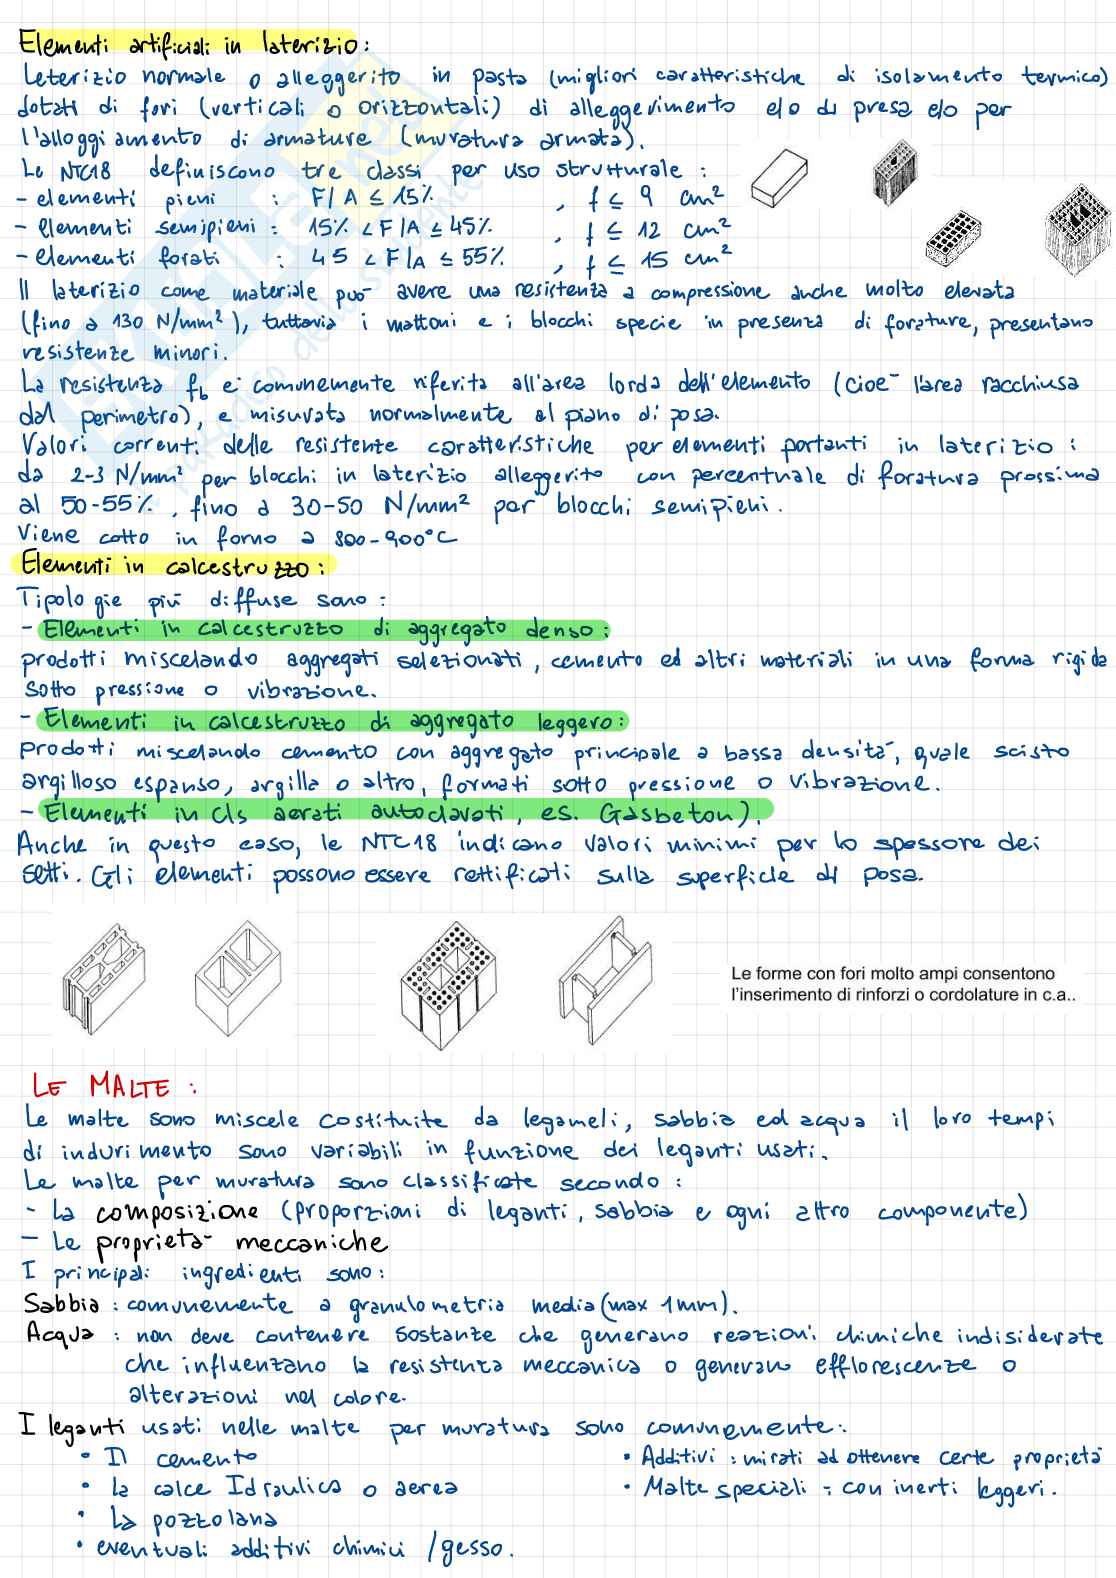 Elementi artificiali in laterizio:
Leterizio normale o alleggerito in pasta (migliori caratteristiche di isolamento termico)
dotati di fori (verticali o orizzontali) di alleggerimento e/o di presa e/o per
l'alloggiamento di armature (muratura armata).
Le NTC18 definiscono tre classi per uso strutturale:
- elementi pieni : F/A ≤ 15% , f ≤ 9 cm²
- Elementi semipieni: 15% < F/A ≤ 45% , f ≤ 12 cm²
- elementi forati : 45 < F/A ≤ 55% , f ≤ 15 cm²
Il laterizio come materiale può avere una resistenza a compressione anche molto elevata
(fino a 130 N/mm²), tuttavia i mattoni e i blocchi specie in presenza di forature, presentano
resistenze minori.
La resistenza fb è comunemente riferita all'area lorda dell'elemento (cioè l'area racchiusa
dal perimetro), e misurata normalmente al piano di posa.
Valori correnti delle resistente caratteristiche per elementi portanti in laterizio:
da 2-3 N/mm² per blocchi in laterizio alleggerito con percentuale di foratura prossima
al 50-55%, fino a 30-50 N/mm² par blocchi semipieni.
Viene cotto in forno a 800-900°C
Elementi in calcestruzzo:
Tipologie più diffuse sono:
- Elementi in calcestruzzo di aggregato denso:
prodotti miscelando aggregati selezionati, cemento ed altri materiali in una forma rigida
sotto pressione o vibrazione.
- Elementi in calcestruzzo di aggregato leggero:
prodotti miscelando cemento con aggregato principale a bassa densità, quale scisto
argilloso espanso, argilla o altro, formati sotto pressione o vibrazione.
- Elementi in cls aerati autoclavati, es. Gasbeton).
Anche in questo caso, le NTC18 indicano valori minimi per lo spessore dei
setti. Gli elementi possono essere rettificati sulla superficie di posa.
Le forme con fori molto ampi consentono
l'inserimento di rinforzi o cordolature in c.a..
LE MALTE:
Le malte sono miscele costituite da legameli, sabbia ed acqua il loro tempi
di indurimento sono variabili in funzione dei leganti usati.
Le malte per muratura sono classificate secondo:
- La composizione (proporzioni di leganti, sabbia e ogni altro componente)
- Le proprietà meccaniche
I principali ingredienti sono:
Sabbia: comunemente a granulometria media (max 1mm).
Acqua: non deve contenere sostanze che generano reazioni chimiche indisiderate
che influenzano la resistenza meccanica o generano efflorescenze o
alterazioni nel colore.
I leganti usati nelle malte per muratura sono comunemente:
• Il cemento
• la calce Idraulica o aerea
• La pozzolana
• eventuali additivi chimici /gesso.
• Additivi: mirati ad ottenere certe proprietà
• Malte speciali: con inerti leggeri.